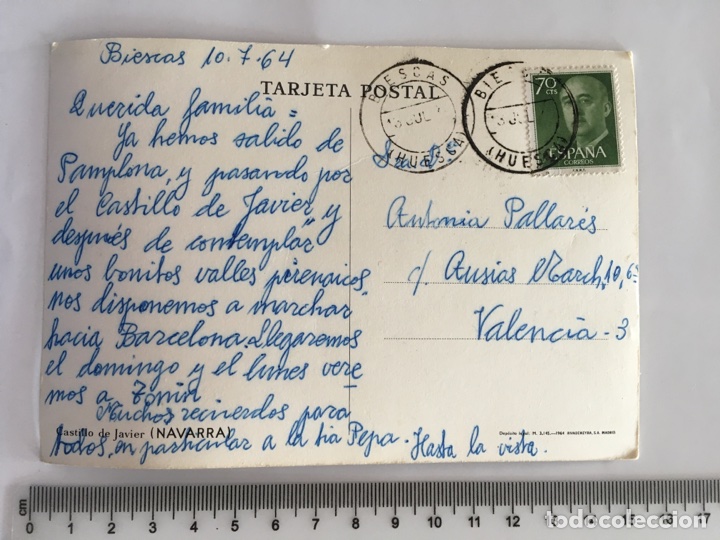 Biescas 10.7.64
TARJETA POSTAL
Querida familia =
Ya hemos salido de
Pamplona, y pasando por
el Castillo de Javier, y
después de contemplar
unos bonitos valles pirenaicos,
nos disponemos a marchar
hacia Barcelona. Llegaremos
el domingo y el lunes vere
mos a Tonín
Muchos recuerdos para
todos, en particular a la tía Pepa. Hasta la vista.
Castillo de Javier (NAVARRA)
BIESCAS
(HUESCA)
BIESCAS
(HUESCA)
70 CTS
ESPAÑA
CORREOS
Antonia Pallarés
c/. Ausias March, 10, 6ª
Valencia-3
cm 1 2 3 4 5 6 7 8 9 10 11 12 13 14 15 16 17
todocoleccion